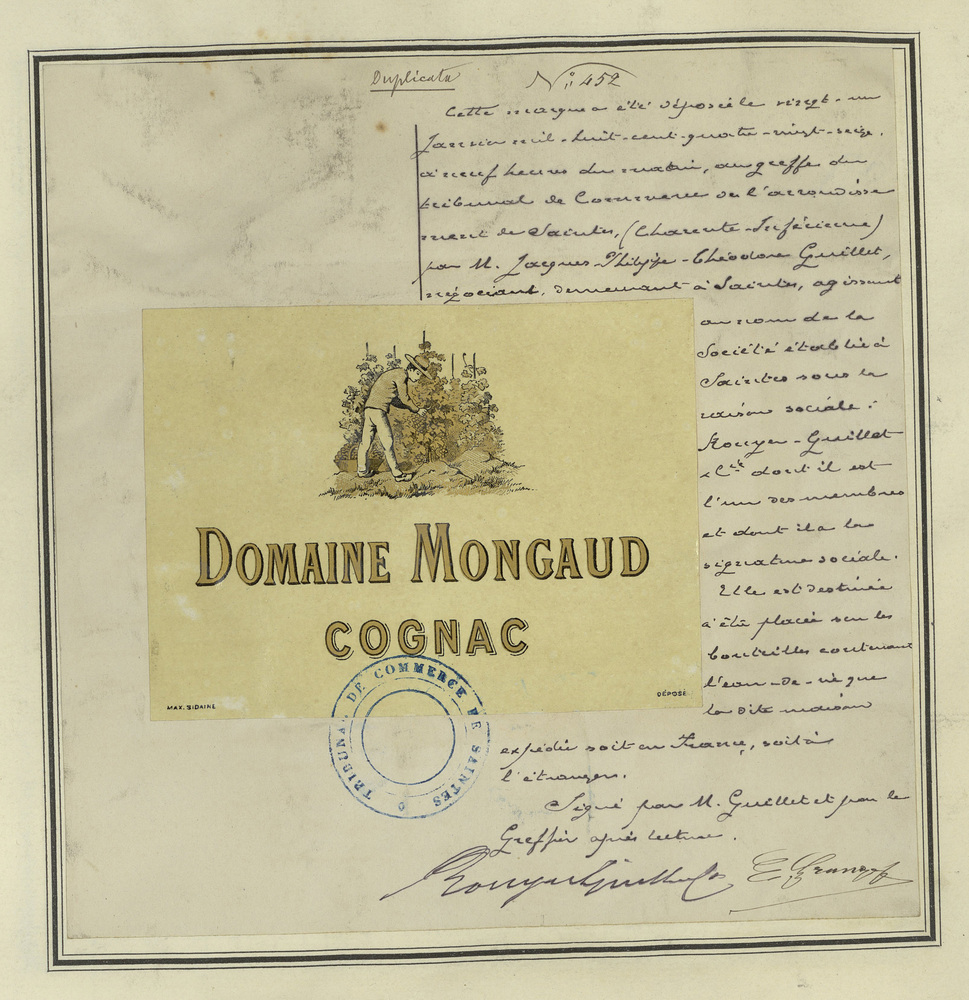 Duplicata
N° 452
Cette marque a été déposée le vingt-un
Janvier mil-huit-cent-quatre-vingt-seize,
à neuf heures du matin, au greffe du
tribunal de Commerce de l'arrondisse
ment de Saintes, (Charente-Inférieure)
par M. Jacques-Philippe-Théodore Guillet,
négociant, demeurant à Saintes, agissant
au nom de la
Société établie à
Saintes sous la
raison sociale :
Rouyer-Guillet
& Cie dont il est
l'un des membres
et dont il a la
signature sociale.
Elle est destinée
à être placée sur les
bouteilles contenant
l'eau-de-vie que
la dite maison
expédie soit en France, soit à
l'étranger.
Signé par M. Guillet et par le
Greffier après lecture.
Rouyer Guillet & Co
DOMAINE MONGAUD
COGNAC
MAX. SIDAINE
DÉPOSÉ
TRIBUNAL DE COMMERCE DE SAINTES